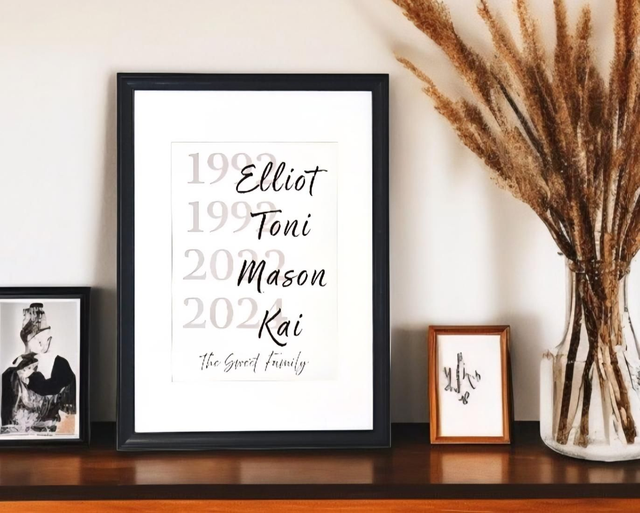 1992 Elliot
1992 Toni
2022 Mason
2024 Kai
The Sweet Family